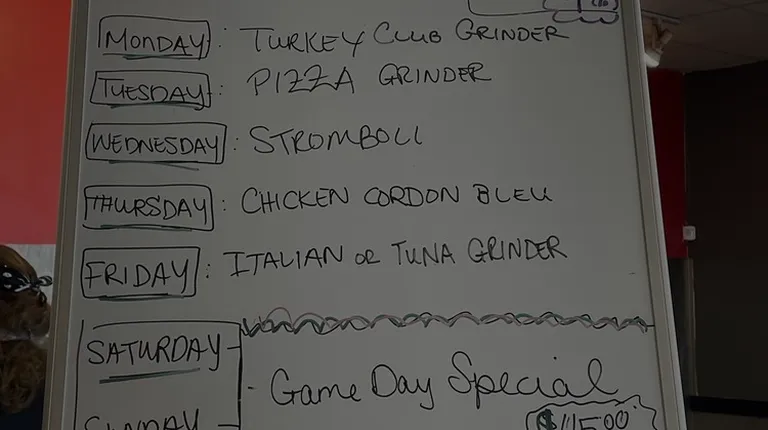 MONDAY: TURKEY CLUB GRINDER
TUESDAY: PIZZA GRINDER
WEDNESDAY: STROMBOLI
THURSDAY: CHICKEN CORDON BLEU
FRIDAY: ITALIAN OR TUNA GRINDER
SATURDAY-
- Game Day Special
SUNDAY-